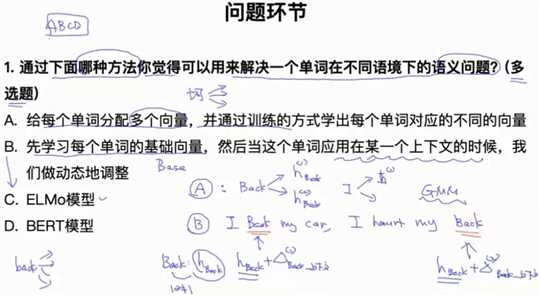 问题环节
ABCD
1. 通过下面哪种方法你觉得可以用来解决一个单词在不同语境下的语义问题?(多
选题)
A. 给每个单词分配多个向量，并通过训练的方式学出每个单词对应的不同的向量
B. 先学习每个单词的基础向量，然后当这个单词应用在某一个上下文的时候，我
们做动态地调整
Base
C. ELMo模型
D. BERT模型
A : Back h Back h Back I
GMM
B I Back my car, I hurt my Back
back
Back: h Back h Back + Δ Back_上下文 h Back + Δ Back_上下文